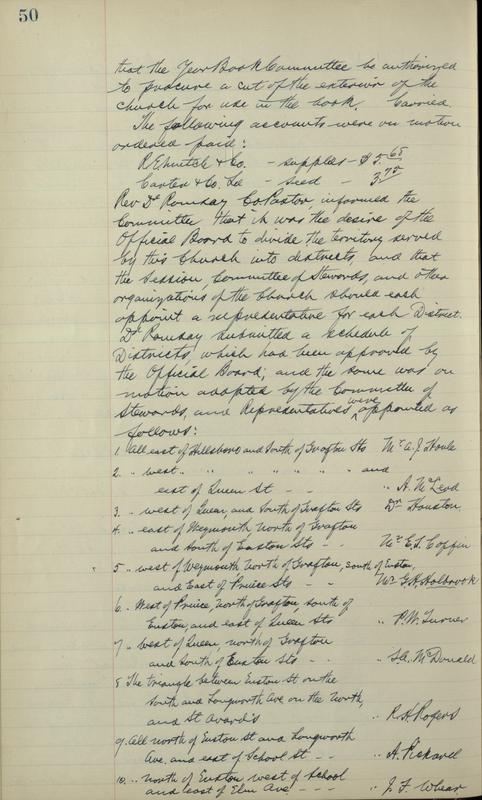 50
that the Year Book Committee be authorized
to procure a cut of the exterior of the
church for use in the book. Carried.
The following accounts were on motion
ordered paid:
& Co. - supplies - $5.65
Carter & Co. Ld - seed - 3.75
Rev Dr Ramsay Co Pastor, informed the
Committee that it was the desire of the
Official Board to divide the territory served
by this Church into districts, and that
the Session, Committee of Stewards, and other
organizations of the Church should each
appoint a representative for each District.
Dr Ramsay submitted a schedule of
Districts, which had been approved by
the Official Board, and the same was on
motion adopted by the Committee of
Stewards, and Representatives were appointed as
follows:
1. All east of Hillsboro and South of Grafton Sts Mr A. J. Houle
2. " west " " " " " " and
east of Queen St - - " A. McLeod
3. " west of Queen and South of Grafton Sts Dr Houston
4. " east of Weymouth North of Grafton
and South of Euston Sts - - Mr E. J. Coffin
5 " west of Weymouth North of Grafton, South of Euston,
and East of Prince Sts - Mr G. H. Holbrook
6. " West of Prince, North of Grafton, south of
Euston, and east of Queen Sts " P. W. Turner
7 " west of Queen, north of Grafton
and South of Euston Sts - - " S. A. McDonald
8 The triangle between Euston St on the
South and Longworth Ave on the North,
and St Avard's " R. H. Rogers
9. All north of Euston St and Longworth
Ave. and east of School St - - " A. Pickard
10. " north of Euston west of School
and east of Elm Ave - - - " J. F. Whear